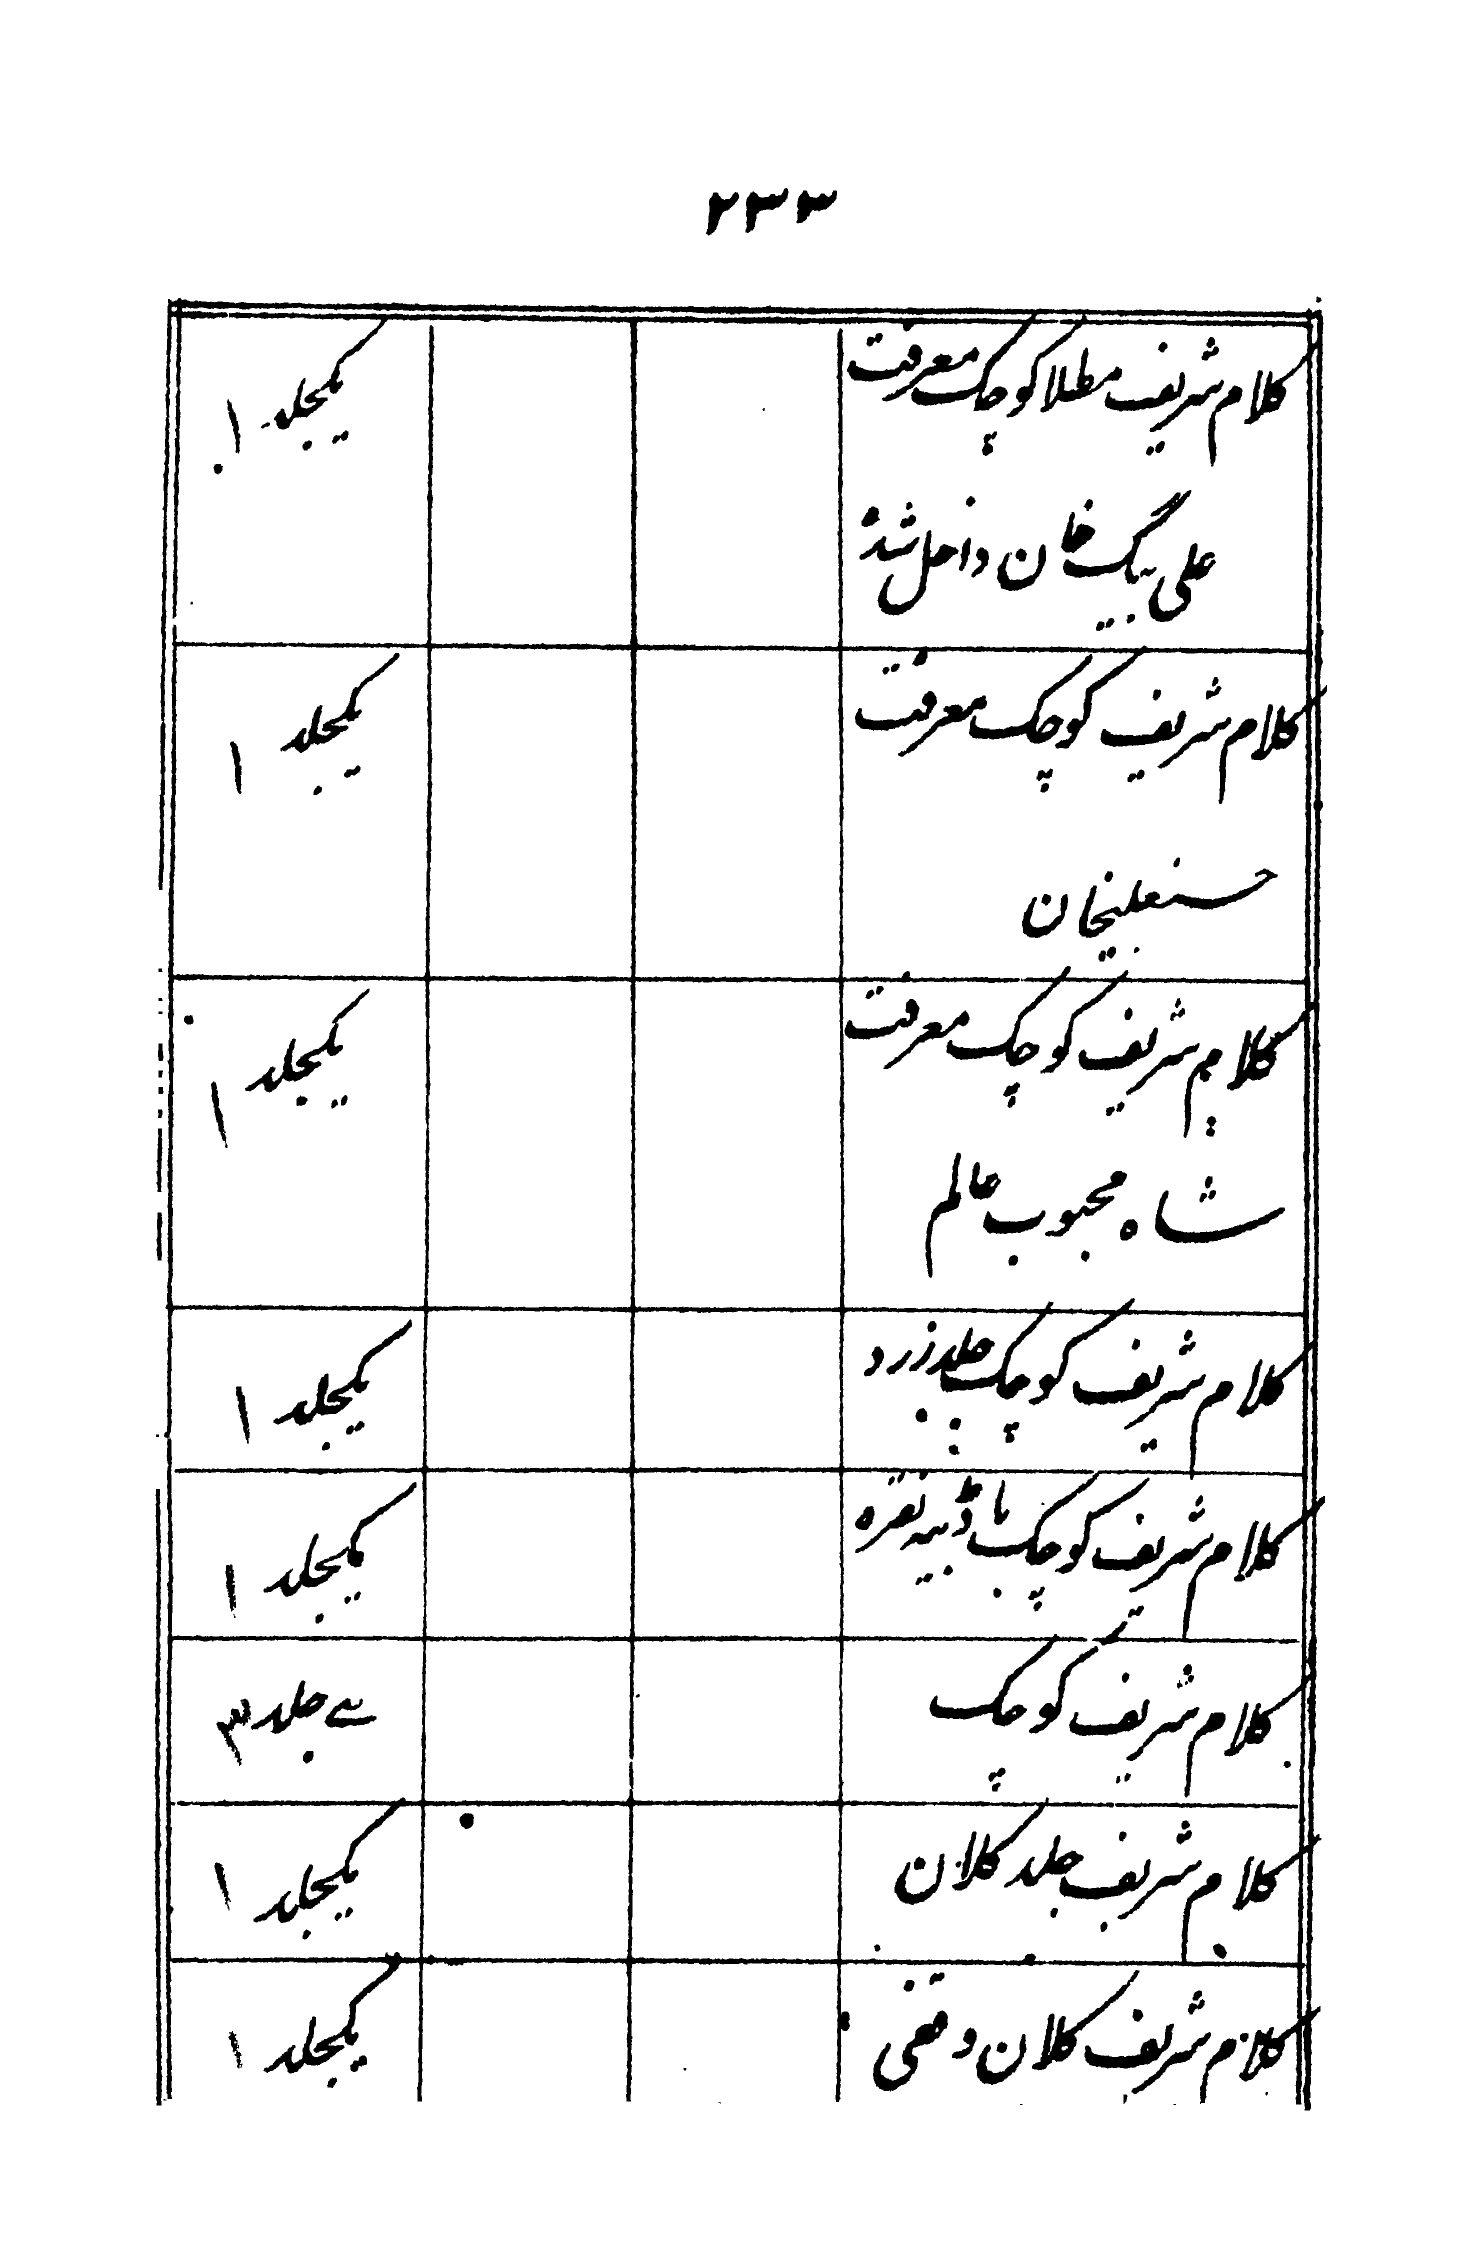 ۲۳۳
کلام شریف مطلا کوچک معرفت یکجلد ۱
علی بیگ خان داخل شدہ
کلام شریف کوچک معرفت یکجلد ۱
حسنعلیخان
کلام شریف کوچک معرفت یکجلد ۱
شاہ محبوب عالم
کلام شریف کوچک جلد زرد یکجلد ۱
کلام شریف کوچک با ڈبیہ نقرہ یکجلد ۱
کلام شریف کوچک سے جلد ۳
کلام شریف جلد کلان یکجلد ۱
کلام شریف کلان وقفی یکجلد ۱